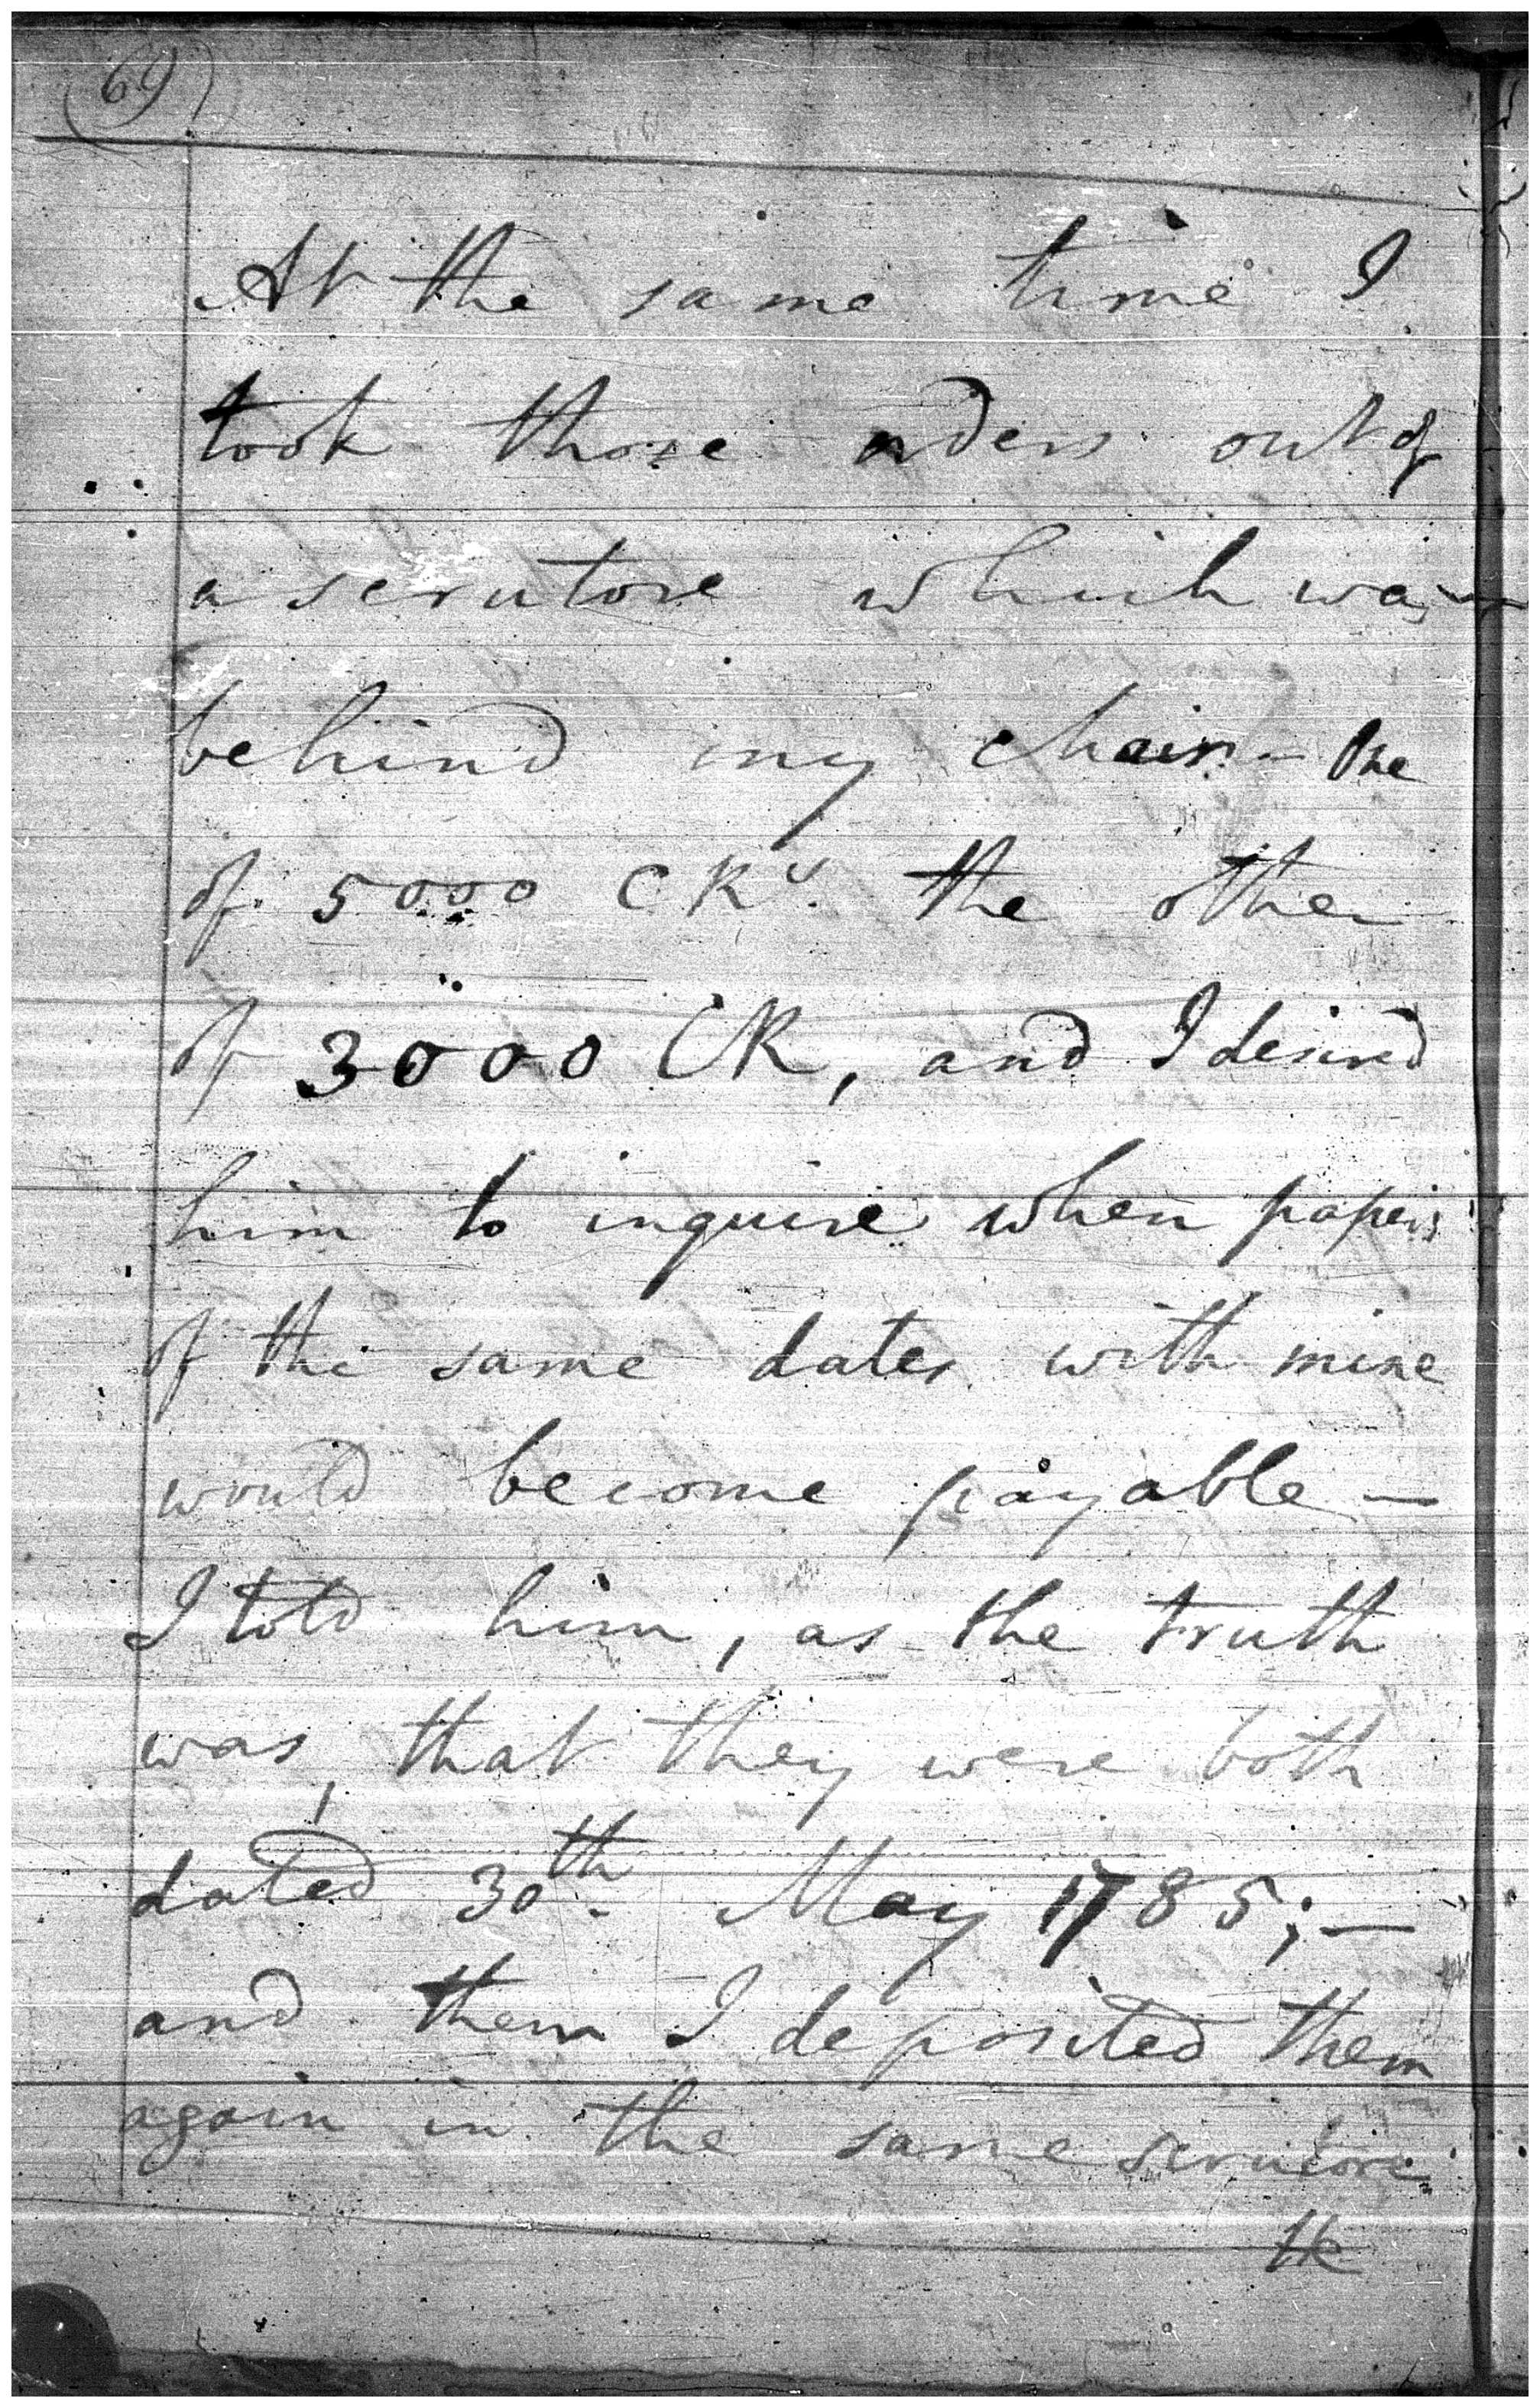 (69)
At the same time I
took those orders out of
a scrutore which was
behind my chair — One
of 5000 CRs. the other
of 3000 CR, and I desired
him to inquire when papers
of the same dates with mine
would become payable —
I told him, as the truth
was, that they were both
dated 30th. May 1785; —
and then I deposited them
again in the same scrutore
the